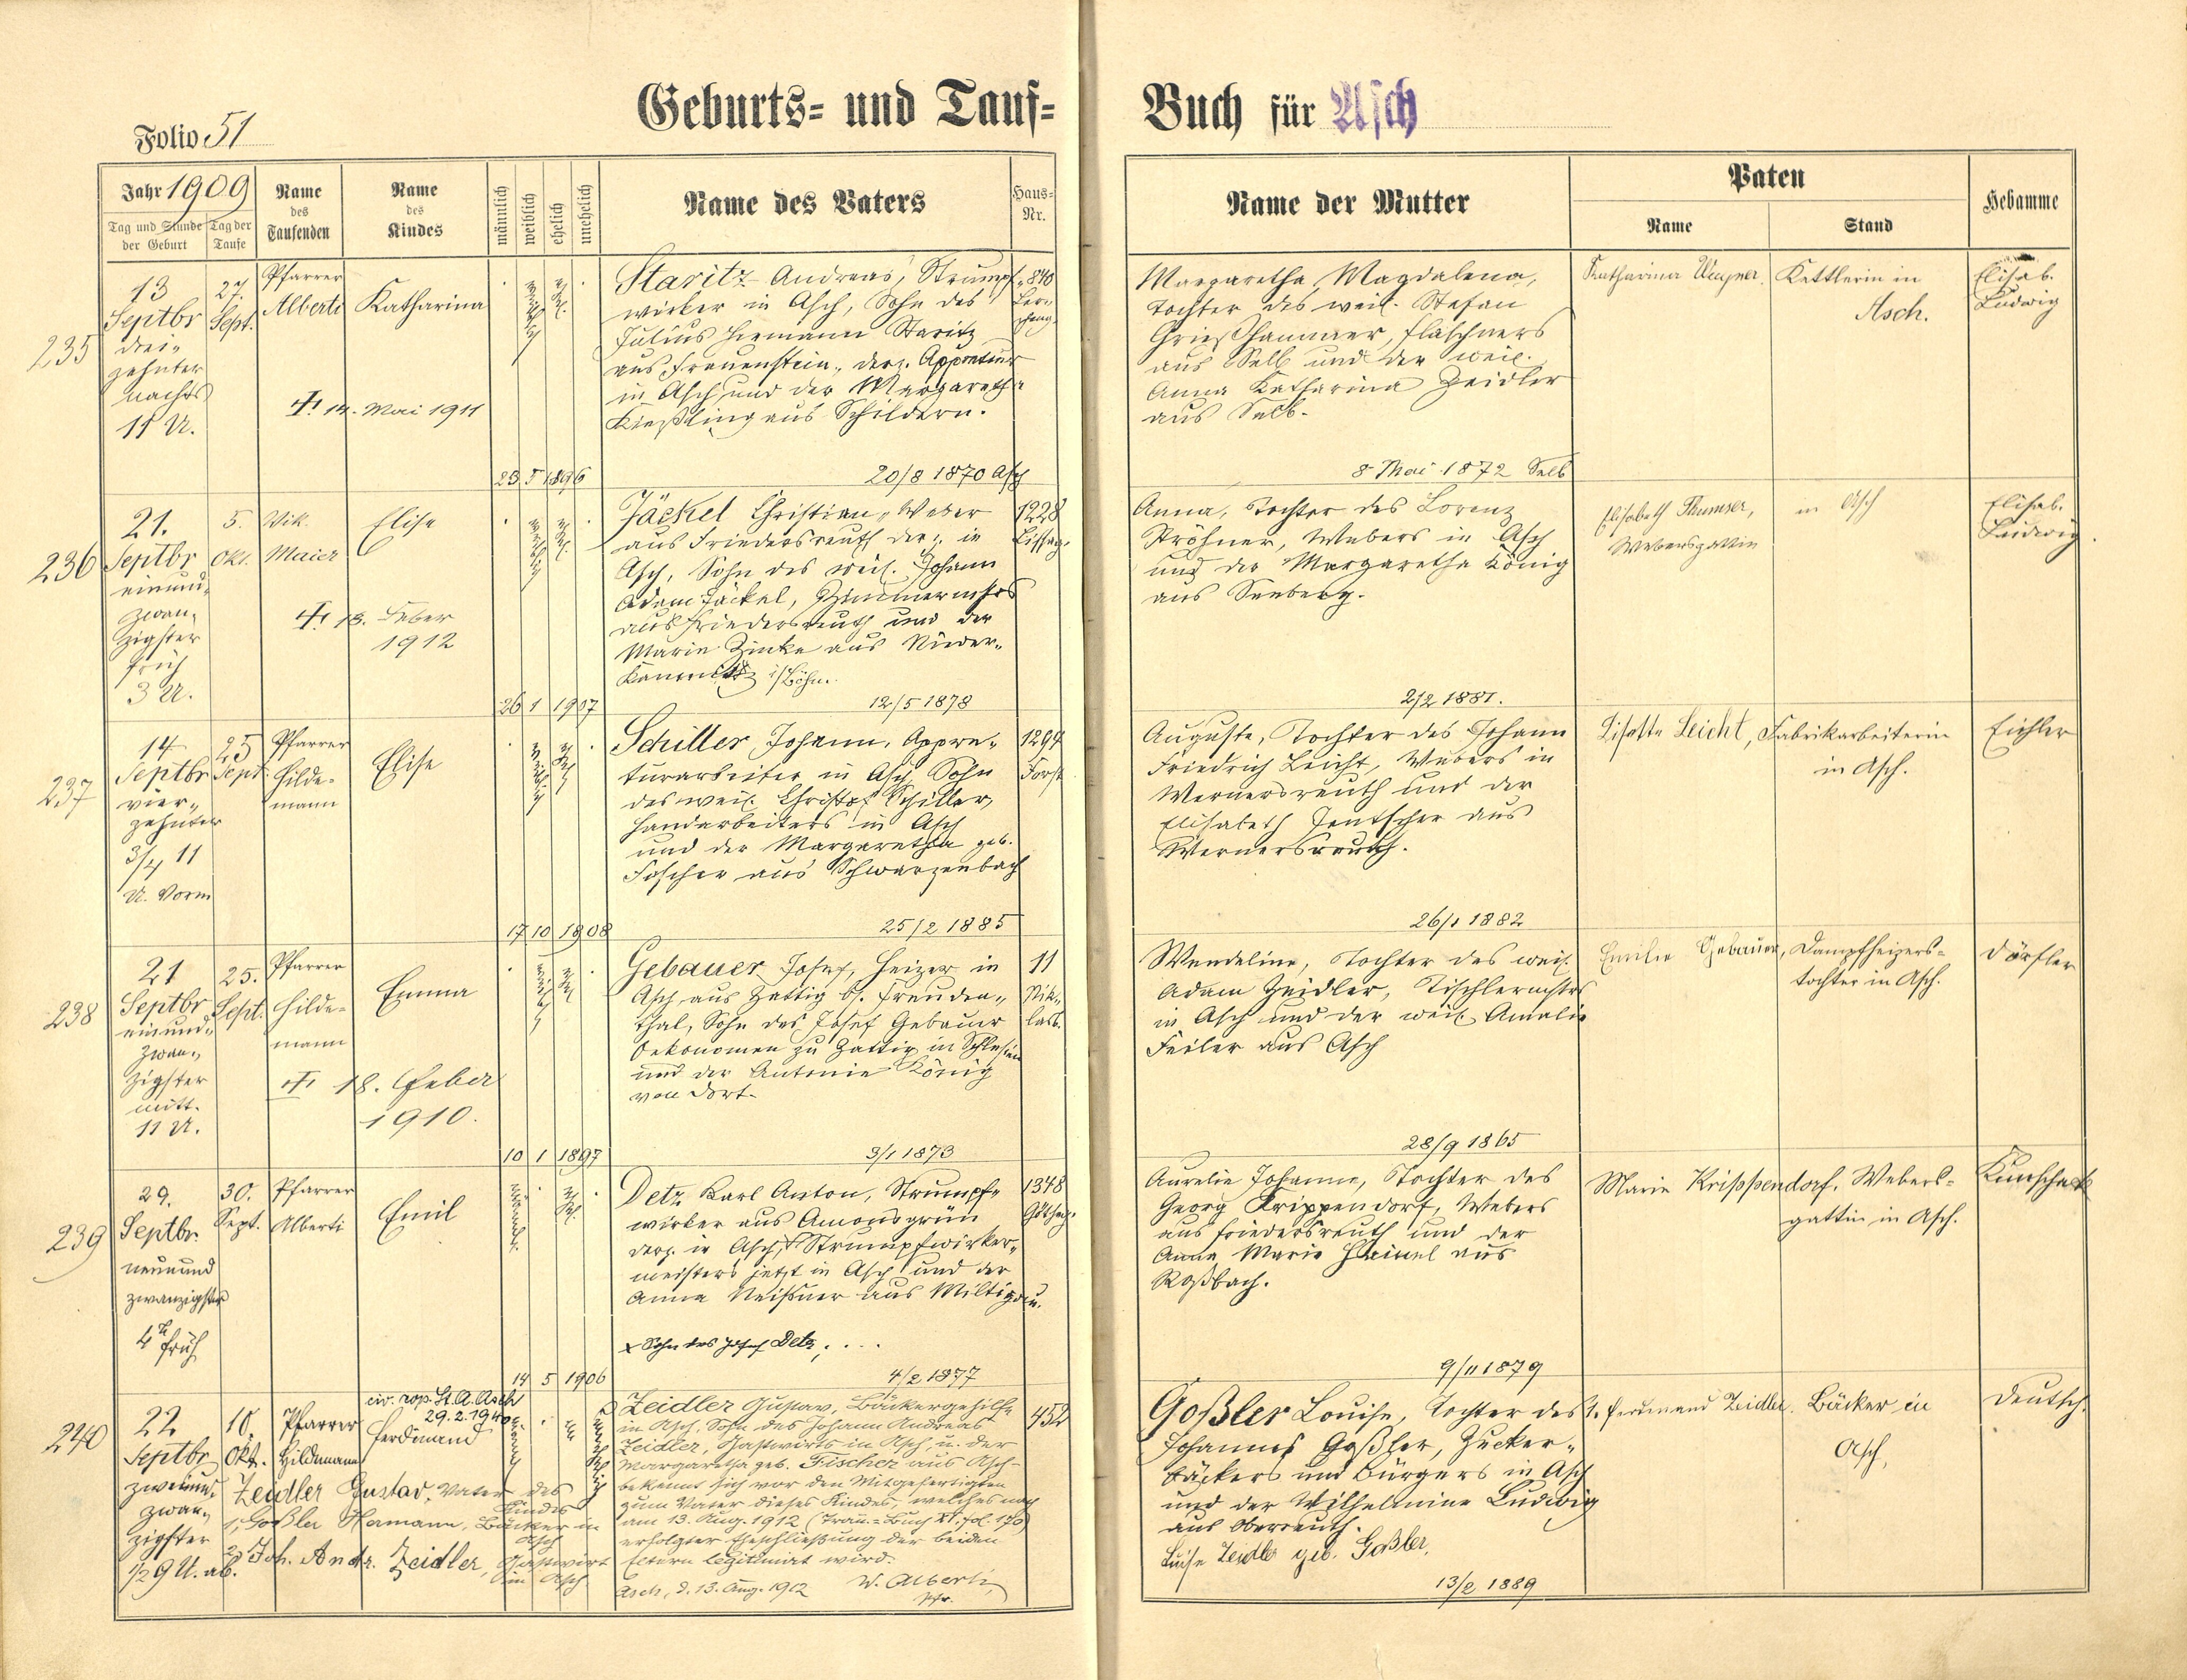 Folio 51
Geburts- und Tauf-
Buch für Asch
Jahr 1909
Tag und Stunde der Geburt
Tag der Taufe
Name des Taufenden
Name des Kindes
männlich
weiblich
ehelich
unehelich
Name des Vaters
Haus-Nr.
Name der Mutter
Paten
Name
Stand
Hebamme
235
13
Septbr
drei-
zehnter
nachts
11 U.
27.
Sept.
Pfarrer
Alberti
Katharina
✝ 14. Mai 1911
Staritz Andreas, Strumpf-
wirker in Asch, Sohn des
Julius Hermann Staritz
aus Frauenstein, derz. Appreteur
in Asch und der Margareth
Kießling aus Schildern.
840
23 5 1896
20/8 1870 Asch
Margaretha Magdalena,
Tochter des weil. Stefan
Grießhammer, Flaschners
aus Selb und der weil.
Anna Katharina Zeidler
aus Selb.
8 Mai 1872 Selb
Katharina Wagner,
Kettlerin in
Asch.
Elisab.
Ludwig
236
21.
Septbr
einund-
zwan-
zigster
früh
3 U.
5.
Okt.
Vik.
Maier
Elise
✝ 13. Feber
1912
Jäckel Christian, Weber
aus Friedersreuth derz. in
Asch, Sohn des weil. Johann
Adam Jäckel, Zimmermstrs
aus Friedersreuth und der
Marie Zinke aus Nieder-
Kamnitz i/Böhm.
1228
26 1 1907
12/5 1878
Anna, Tochter des Lorenz
Ströhner, Webers in Asch
und der Margaretha König
aus Seeberg.
2/2 1881.
Elisabeth Thumser,
Webersgattin
in Asch
Elisab.
Ludwig.
237
14
Septbr
vier-
zehnter
3/4 11
U. Vorm
25
Sept.
Pfarrer
Hilde-
mann
Elise
Schiller Johann, Appre-
turarbeiter in Asch, Sohn
des weil. Christof Schiller,
Handarbeiters in Asch
und der Margaretha geb.
Fischer aus Schwarzenbach
1294
Forst
17 10 1908
25/2 1885
Auguste, Tochter des Johann
Friedrich Leicht, Webers in
Wernersreuth und der
Elisabeth Jentscher aus
Wernersreuth.
26/1 1882
Lisette Leicht,
Fabrikarbeiterin
in Asch.
Eichler
238
21
Septbr
einund-
zwan-
zigster
mitt.
11 U.
25.
Sept.
Pfarrer
Hilde-
mann
Emma
✝ 18. Feber
1910.
Gebauer Josef, Heizer in
Asch aus Zattig b. Freuden-
thal, Sohn des Josef Gebauer
Oekonomen zu Zattig in Schlesien
und der Antonie König
von dort.
11
Nik-
lasb.
10 1 1897
3/1 1873
Wendeline, Tochter des weil.
Adam Zeidler, Tischlermstrs
in Asch und der weil. Amalie
Feiler aus Asch
28/9 1865
Emilie Gebauer,
Dampfheizers-
tochter in Asch.
Dörfler
239
29.
Septbr.
neunund
zwanzigster
4 U
früh
30.
Sept.
Pfarrer
Alberti
Emil
Detz Karl Anton, Strumpf-
wirker aus Amonsgrün
derz. in Asch, x Strumpfwirker-
meisters jetzt in Asch und der
Anna Meißner aus Miltigau.
x Sohn des Josef Detz,
1348
14 5 1906
4/2 1877
Aurelie Johanne, Tochter des
Georg Krippendorf, Webers
aus Friedersreuth und der
Anna Marie Heinel aus
Roßbach.
9/11 1879
Marie Krippendorf,
Webers-
gattin in Asch.
Künschak
240
22
Septbr
zweiund-
zwan-
zigster
1/2 9 U. ab.
10.
Okt.
Pfarrer
Hildemann
civ. rop. St. A. Asch
29.2.1940
Ferdinand
Zeidler Gustav, Vater des
Kindes
1, Goßler Hermann, Bäcker in
Asch
2, Joh. Andr. Zeidler, Gastwirt
in Asch
Zeidler Gustav, Bäckergehilfe
in Asch, Sohn des Johann Andreas
Zeidler, Gastwirts in Asch, u. der
Margaretha geb. Fischer aus Asch -
bekennt sich vor den Mitgefertigten
zum Vater dieses Kindes, welches nach
am 13. Aug. 1912 (Trau-Buch XI. fol. 170)
erfolgter Eheschließung der beiden
Eltern legitimirt wird.
Asch, d. 13. Aug. 1912 W. Alberti,
Pfr.
452
Goßler Louise, Tochter des
Johannes Goßler, Zucker-
bäckers und Bürgers in Asch
und der Wilhelmine Ludwig
aus Oberreuth.
Luise Zeidler geb. Goßler.
13/2 1889
Ferdinand Zeidler,
Bäcker in
Asch,
Deutsch.